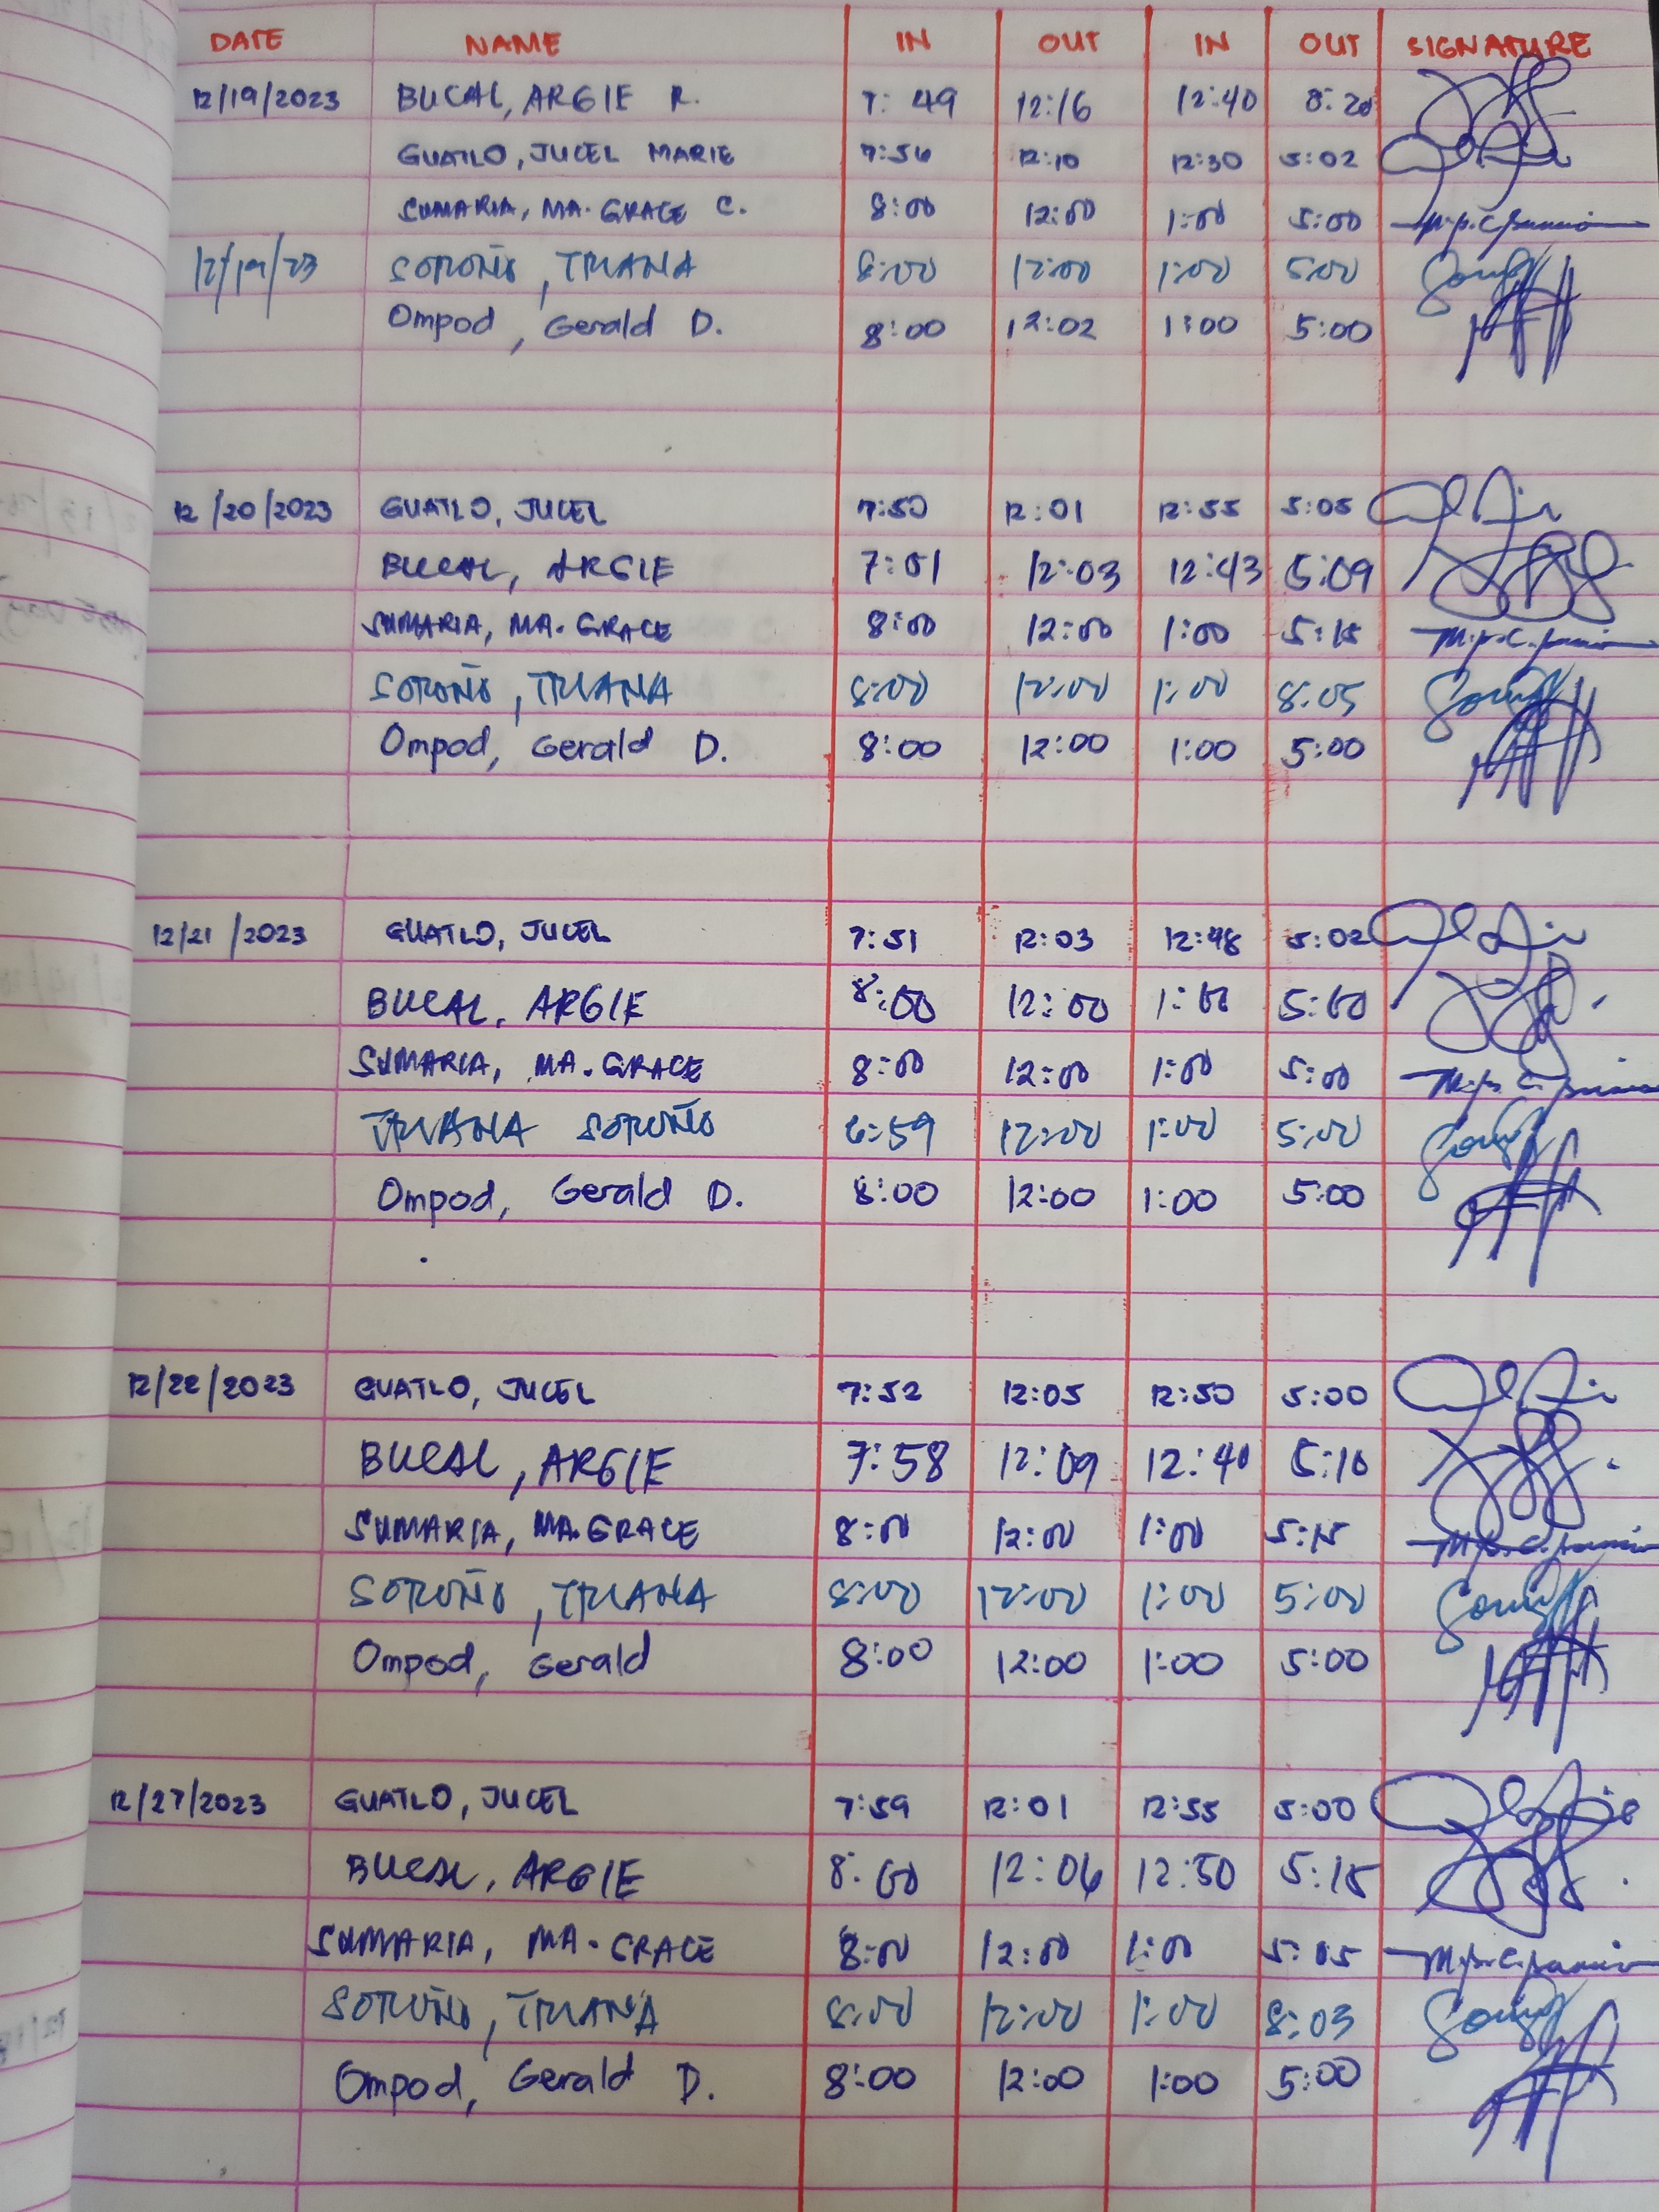 DATE NAME IN OUT IN OUT SIGNATURE
12/19/2023 BUCAL, ARGIE R. 7:49 12:16 12:40 8:20
GUATLO, JUCEL MARIE 7:56 12:10 12:30 5:02
SUMARIA, MA. GRACE C. 8:00 12:00 1:00 5:00
12/19/23 SOROÑO, TRIANA 8:00 12:00 1:00 5:00
Ompod, Gerald D. 8:00 12:02 1:00 5:00
12/20/2023 GUATLO, JUCEL 7:50 12:01 12:55 5:05
BUCAL, ARGIE 7:51 12:03 12:43 5:09
SUMARIA, MA. GRACE 8:00 12:00 1:00 5:15
SOROÑO, TRIANA 8:00 12:00 1:00 8:05
Ompod, Gerald D. 8:00 12:00 1:00 5:00
12/21/2023 GUATLO, JUCEL 7:51 12:03 12:48 5:02
BUCAL, ARGIE 8:00 12:00 1:00 5:00
SUMARIA, MA. GRACE 8:00 12:00 1:00 5:00
TRIANA SOROÑO 6:59 12:00 1:00 5:00
Ompod, Gerald D. 8:00 12:00 1:00 5:00
12/22/2023 GUATLO, JUCEL 7:52 12:05 12:50 5:00
BUCAL, ARGIE 7:58 12:09 12:40 5:10
SUMARIA, MA. GRACE 8:00 12:00 1:00 5:15
SOROÑO, TRIANA 8:00 12:00 1:00 5:00
Ompod, Gerald 8:00 12:00 1:00 5:00
12/27/2023 GUATLO, JUCEL 7:59 12:01 12:55 5:00
BUCAL, ARGIE 8:00 12:06 12:50 5:15
SUMARIA, MA. GRACE 8:00 12:00 1:00 5:05
SOROÑO, TRIANA 8:00 12:00 1:00 8:03
Ompod, Gerald D. 8:00 12:00 1:00 5:00